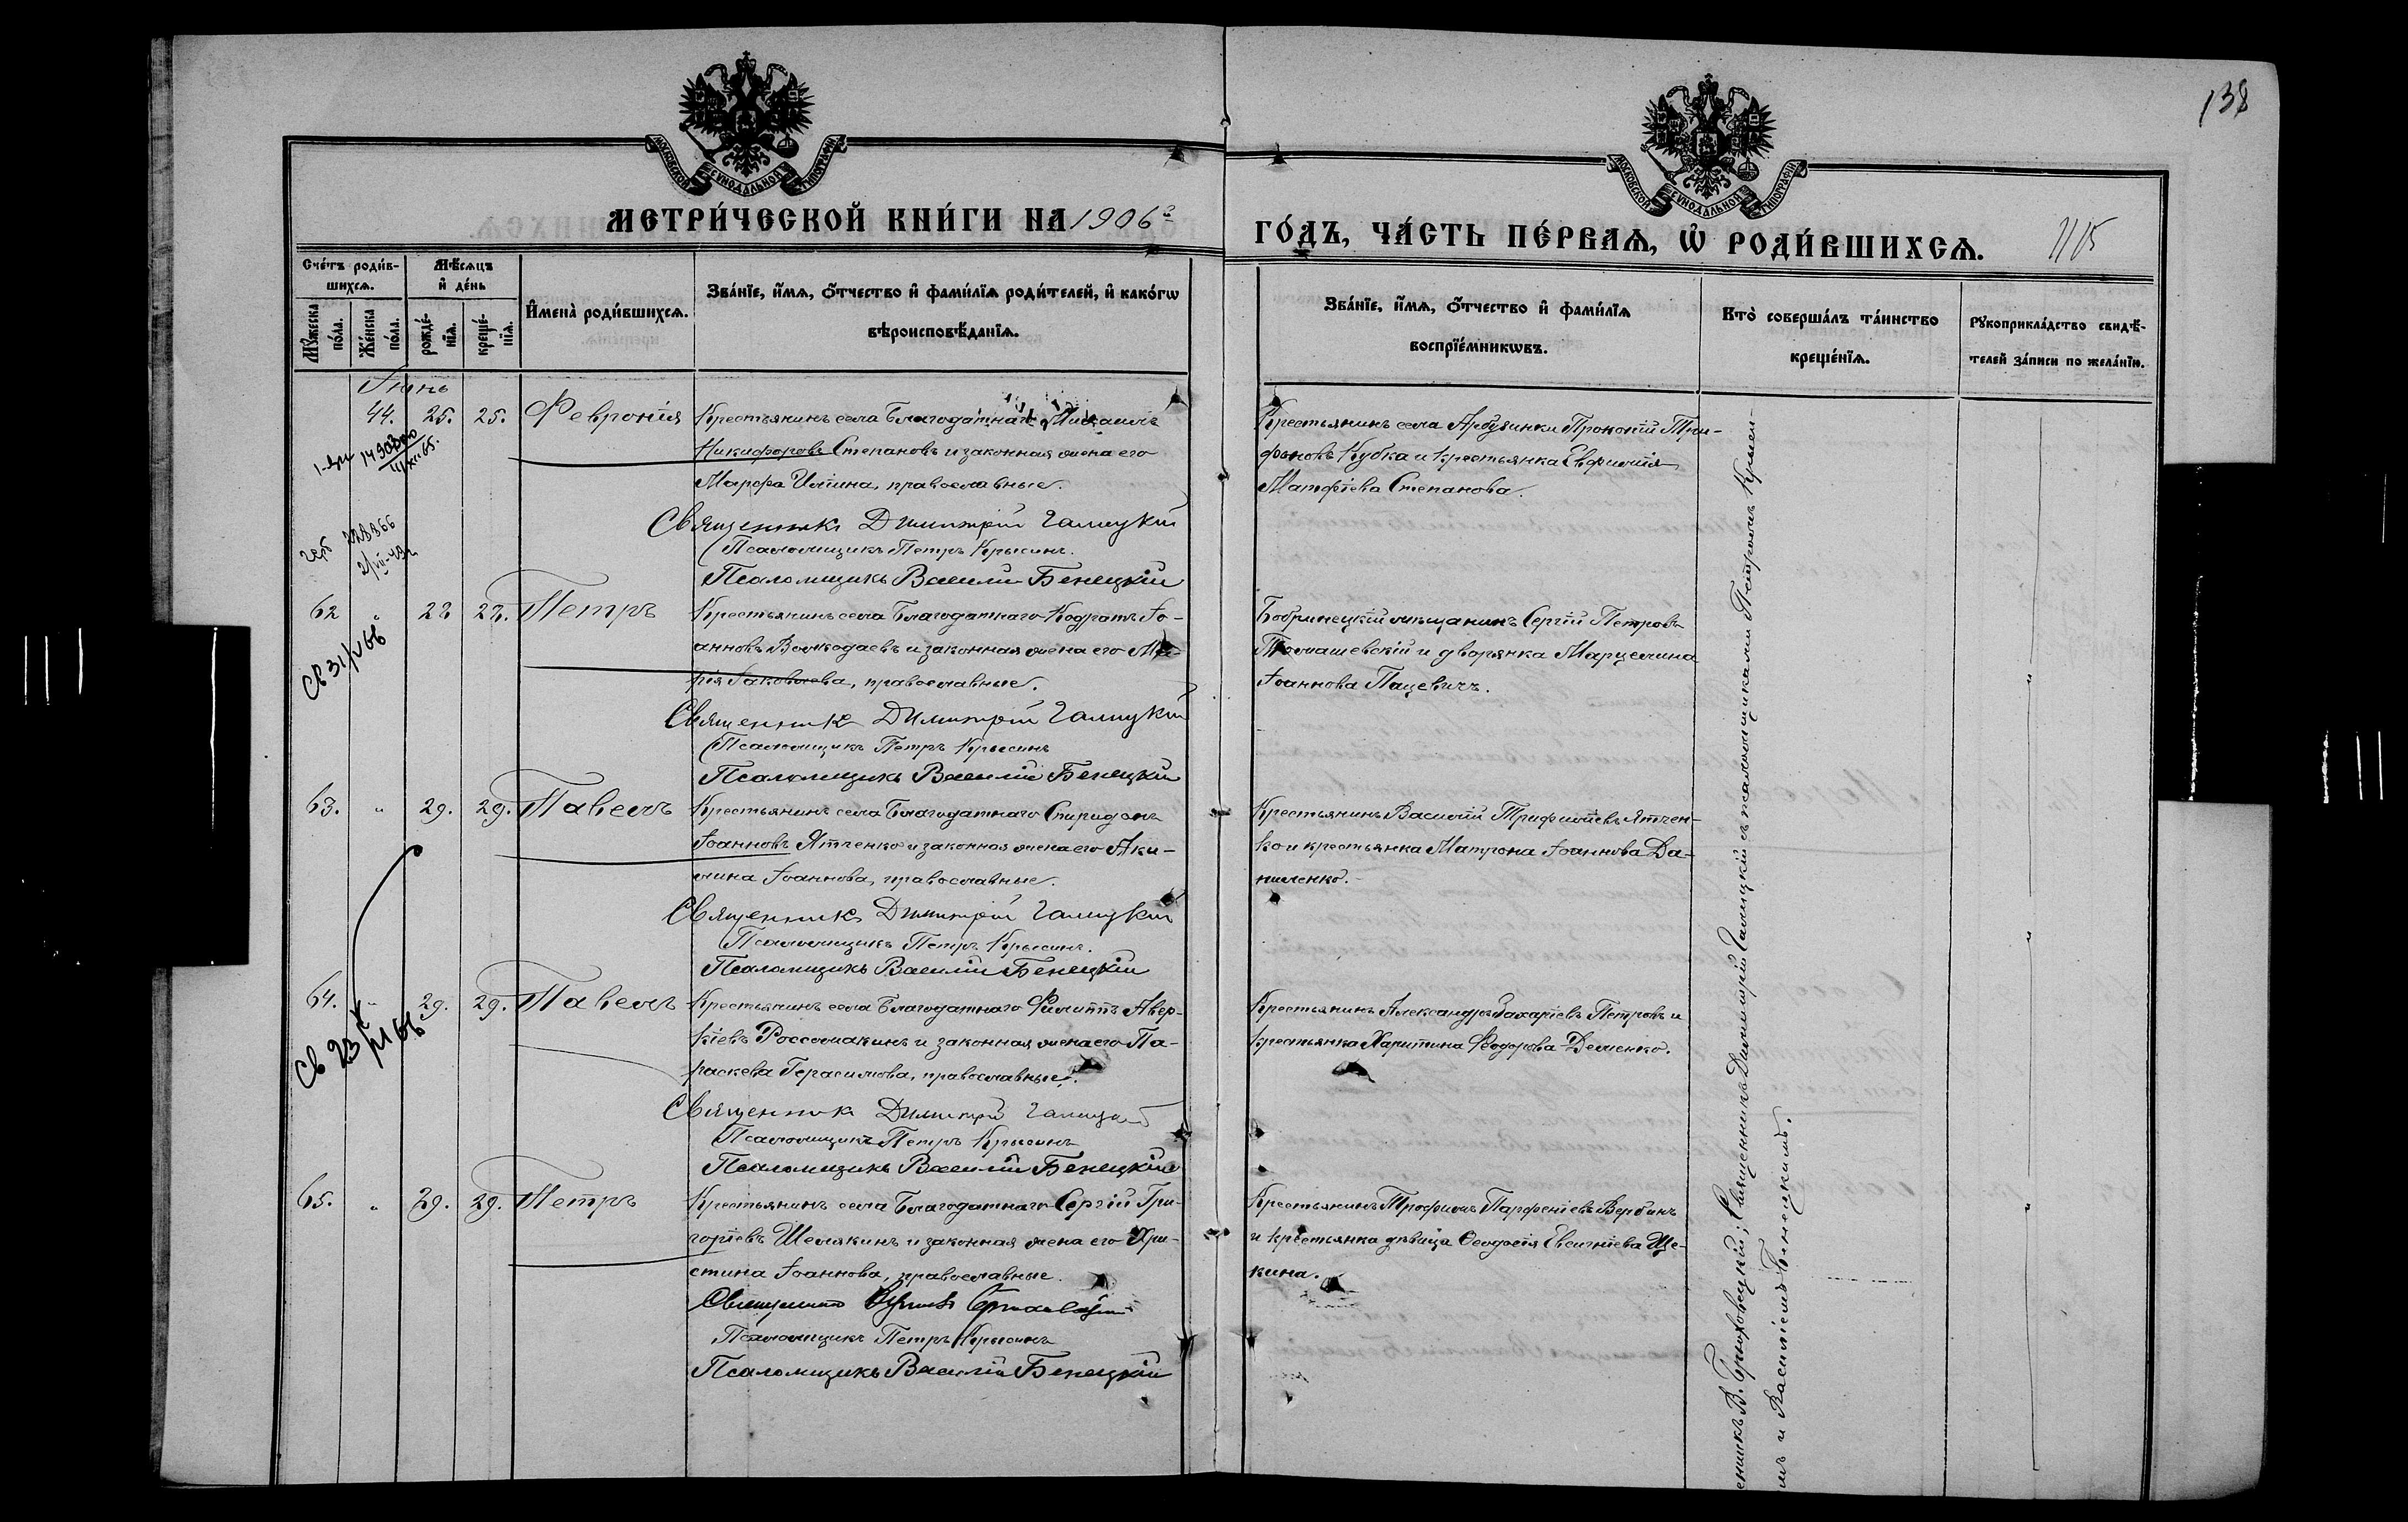 138
МОСКОВСКОЙ СѴНОДАЛЬНОЙ ТИПОГРАФІИ
МОСКОВСКОЙ СѴНОДАЛЬНОЙ ТИПОГРАФІИ
МЕТРИ́ЧЕСКОЙ КНИ́ГИ НА 1906 г
ГО́ДЪ, ЧА́СТЬ ПЕ́РВАѦ, Ѽ РОДИ́ВШИХСѦ.
Сче́тъ роди́в-
шихсѧ.
Мꙋ́жеска по́ла.
Же́нска по́ла.
Мѣ́сѧцъ и҆ де́нь
рожде́-
нїѧ.
креще́-
нїѧ.
И҆мена̀ роди́вшихсѧ.
Зва́нїе, и҆́мѧ, ѻ҆́тчество и҆ фами́лїѧ роди́телей, и҆ како́гѡ
вѣроисповѣ́данїѧ.
Зва́нїе, и҆́мѧ, ѻ҆́тчество и҆ фами́лїѧ
воспрїе́мникѡвъ.
Кто̀ соверша́лъ та́инство
креще́нїѧ.
Рꙋкоприкла́дство свидѣ́-
телей за́писи по жела́нїю.
Іюнь
44. 25. 25. Февронія
Крестьянинъ села Благодатнаго Михаилъ
Никифоровъ Степановъ и законная жена его
Марѳа Иліина, православные.
Священникъ Димитрій Галицкій
Псаломщикъ Петръ Крысинъ.
Псаломщикъ Василій Бенецкій
Крестьянинъ села Арбузинки Прокопій Три-
фоновъ Кубка и крестьянка Евфимія
Матфіева Степанова.
62 " 28 28. Петръ
Св 31/V 66
Крестьянинъ села Благодатнаго Кодратъ Іо-
анновъ Волкодаевъ и законная жена его Ма-
рія Іаковлева, православные.
Священникъ Димитрій Галицкій
Псаломщикъ Петръ Крысинъ
Псаломщикъ Василій Бенецкій
Бобринецкій мѣщанинъ Сергій Петровъ
Томашевскій и дворянка Марцелина
Іоаннова Пацевичъ.
63. " 29. 29. Павелъ
Крестьянинъ села Благодатнаго Спиридонъ
Іоанновъ Ятченко и законная жена его Аки-
лина Іоаннова, православные.
Священникъ Димитрій Галицкій
Псаломщикъ Петръ Крысинъ.
Псаломщикъ Василій Бенецкій
Крестьянинъ Василій Трифиліевъ Ятчен-
ко и крестьянка Матрона Іоаннова Да-
ниленко.
64. " 29. 29. Павелъ
Крестьянинъ села Благодатнаго Филиппъ Авер-
кіевъ Россомакинъ и законная жена его Па-
раскева Герасимова, православные.
Священникъ Димитрій Галицкій
Псаломщикъ Петръ Крысинъ
Псаломщикъ Василій Бенецкій
Крестьянинъ Александръ Захаріевъ Петровъ и
крестьянка Харитина Ѳеодорова Деменко.
65. " 29. 29. Петръ
Крестьянинъ села Благодатнаго Сергій Гри-
горіевъ Шемякинъ и законная жена его Хри-
стина Іоаннова, православные.
Священникъ
Псаломщикъ Петръ Крысинъ
Псаломщикъ Василій Бенецкій
Крестьянинъ Трофимъ Парфеніевъ Вербинъ
и крестьянка дѣвица Ѳеодосія Евсигніева Ще-
кина.
Священникъ Димитрій Галицкій съ псаломщиками Петромъ Крыси-
мъ и Василіемъ Бенецкимъ.